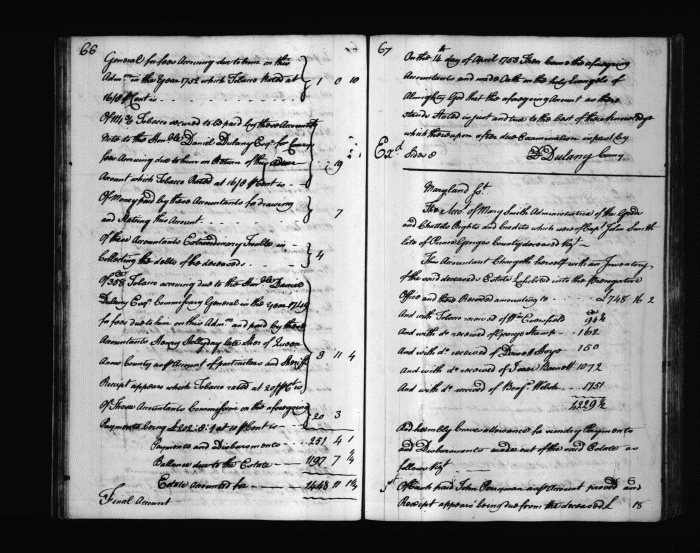 66
General for fees Accruing due to him on this
Adm.on in the Year 1752 which Tobacco Rated at
16/8 Ct is - - - - 1 0 10
Tobacco secured to be paid by these Account
to the Hon.ble Daniel Dulany Esq.r for
fees Accruing due to him on Return of
Account which Tobacco Rated at 16/8 Ct is - - 19
Of Money paid by these Accountants for drawing
and Stating this Account - - - 7
Of these Accountants Extraordinary Trouble in
Collecting the debts of the deceaseds - - 4
Of 358 Tobacco accruing due to the Hon.ble Daniel
Dulany Esq.r Commissary General in the Year 1749
for fees due to him on this Adm.on and paid by these
Accountants Henry Hollyday late Sher of Queen
Anns County as Account of particulars and Sheriffs
Receipt appears which Tobacco rated at is 8 11 4
Of these Accountants Commissions on the aforegoing
Payments being £ at 10 Ct is - 20 3
Payments and Disbursements - - - 251 4 1
Ballance due to the Estate - - - 1197 7
Estate accounted for - - - 1448 11
Final Account
67
On this 14th day of April 1753 Then came the aforegoing
Accountants and made Oath on the holy Evangels of
Almighty God that the aforegoing Account as there
stands Stated is just and true to the best of their knowledge
which thereupon after due Examination is past by
Ex.d Sides 8 D Dulany Comry
Maryland Sst.
The Acc.t of Mary Smith Administratrix of the Goods
and Chattels Rights and Credits which were of Cap.t John Smith
late of Prince Georges County deceased
This Accountant Chargeth herself with an Inventory
of the said deceaseds Estate Exhibited into the Prerogative
Office and there Recorded amounting to - - £748 16 2
And with Tobacco received of W.m
And with d.o received of George - - 162
And with d.o received of - - 150
And with d.o received of 1072
And with d.o received of Benj.a Welsh - - 1751
And humbly craves allowance for sundry Payments
and Disbursements made out of the said Estate as
follows
1st Of Cash paid John as Account proved and
Receipt appears being due from the deceased £ 18